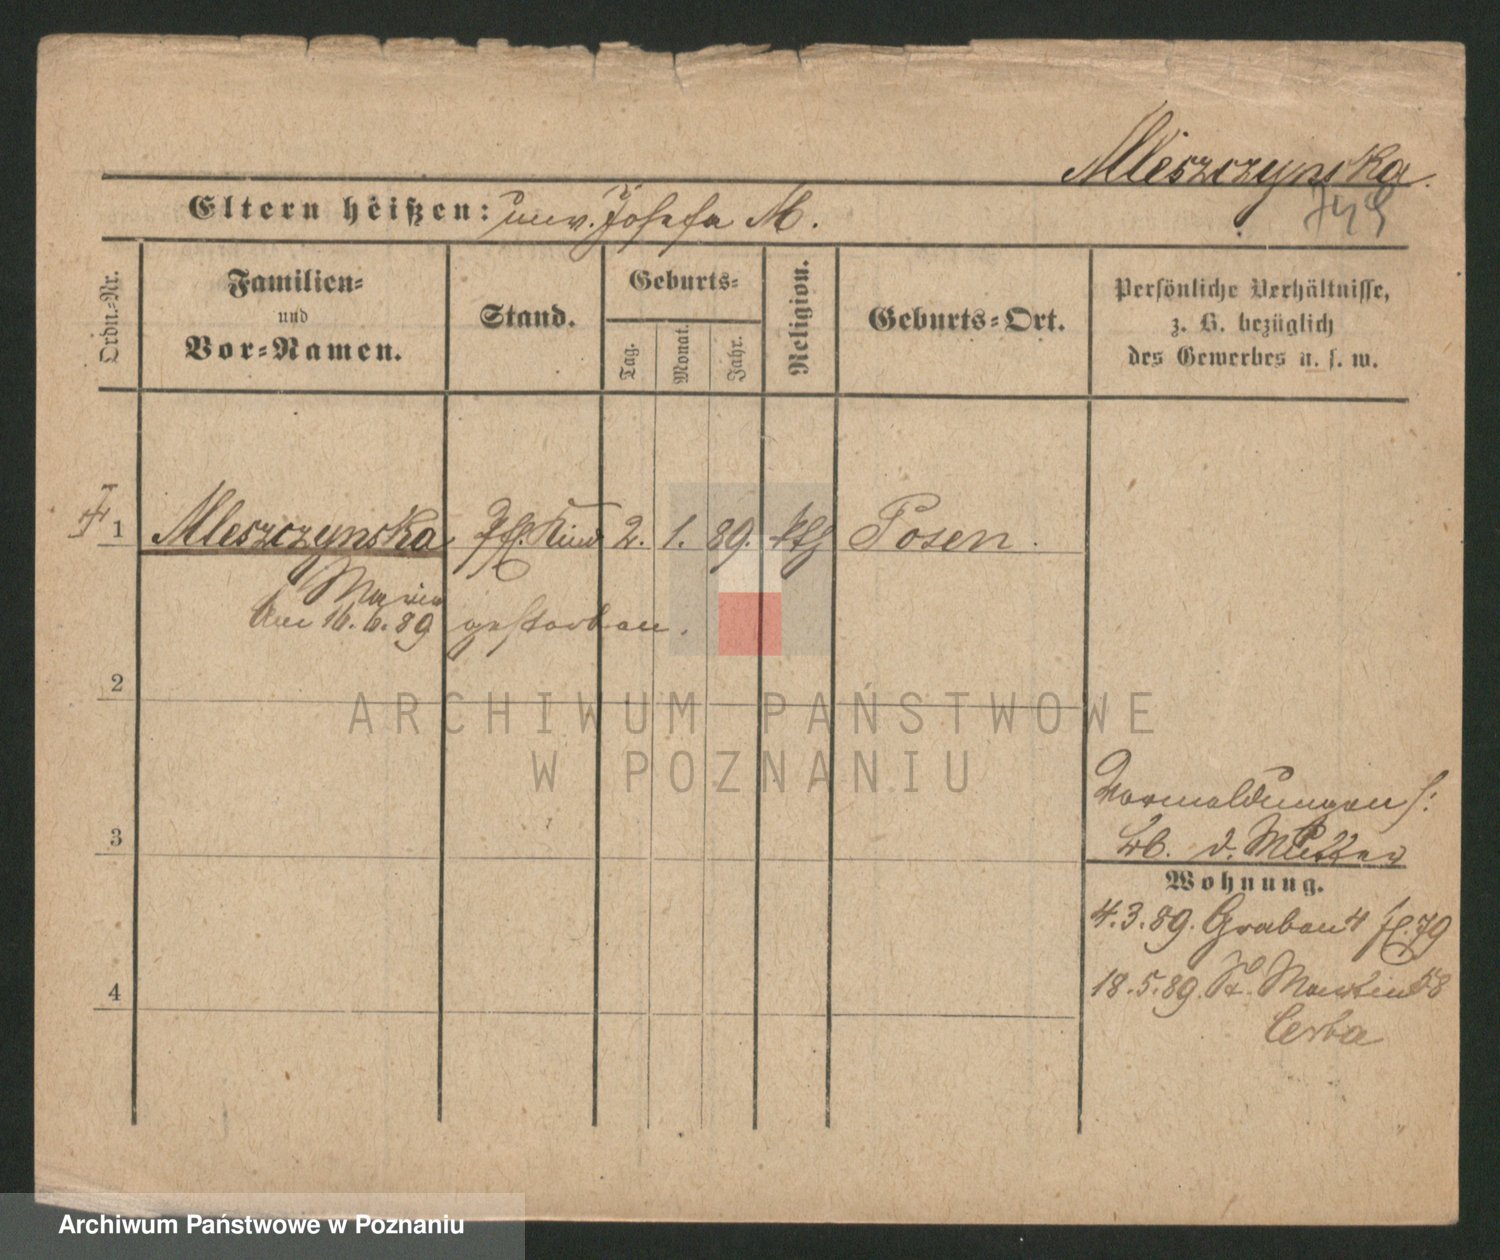 Mleszczynska.
749
Eltern heißen: unv. Josefa M.
Ordn.-Nr.
Familien-
und
Vor-Namen.
Stand.
Geburts-
Tag.
Monat.
Jahr.
Religion.
Geburts-Ort.
Persönliche Verhältnisse,
z. B. bezüglich
des Gewerbes u. s. w.
1 Mleszczynska Pfl. Kind 2. 1. 89. ktg Posen.
Maria
Am 16.6.89 gestorben.
2
ARCHIWUM PAŃSTWOWE
W POZNANIU
Vormeldungen s:
3
d. Mutter
Wohnung.
4.3.89. Graben 4
18.5.89. St. Martin 58
4
Cerba
Archiwum Państwowe w Poznaniu